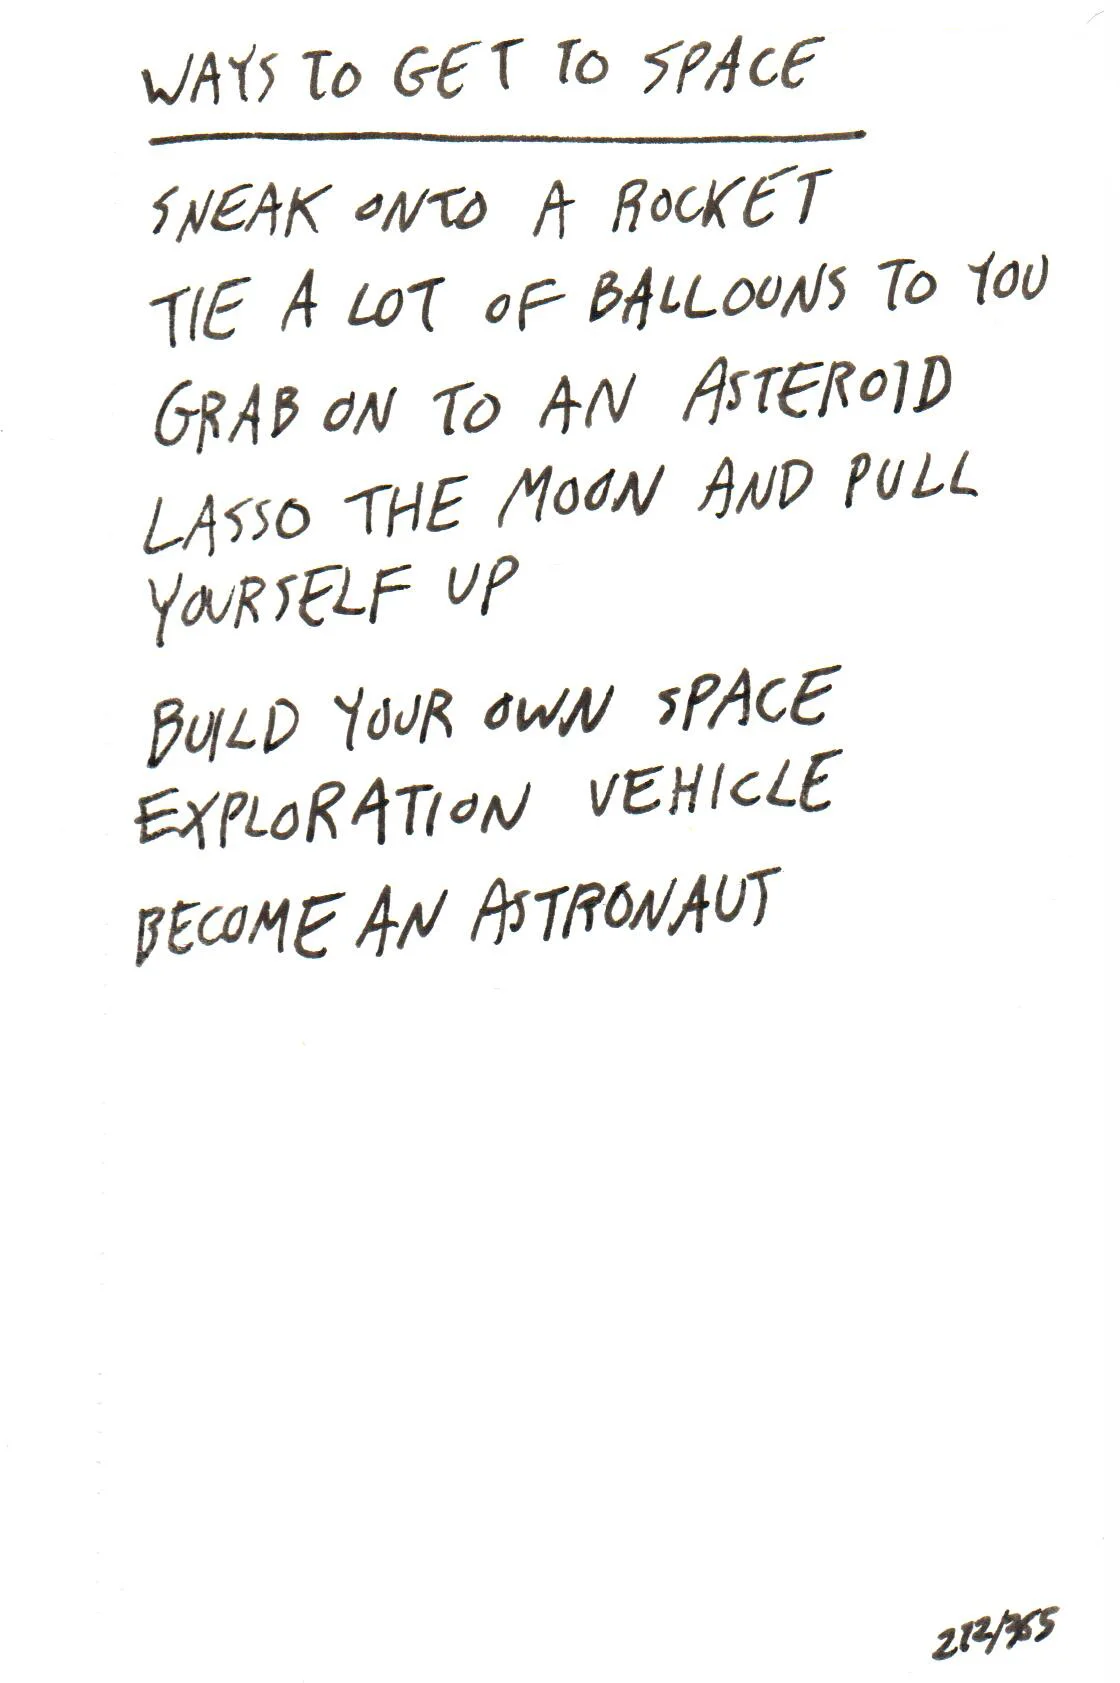 WAYS TO GET TO SPACE
SNEAK ONTO A ROCKET
TIE A LOT OF BALLOONS TO YOU
GRAB ON TO AN ASTEROID
LASSO THE MOON AND PULL
YOURSELF UP
BUILD YOUR OWN SPACE
EXPLORATION VEHICLE
BECOME AN ASTRONAUT
212/365